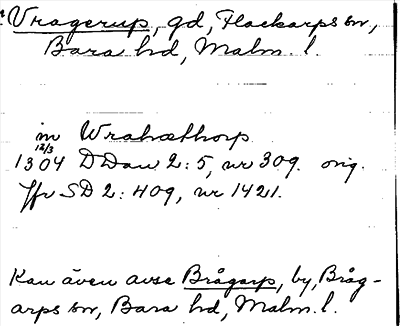 Vragerup, gd, Flackarps sn,
Bara hd, Malm. l.
in Wrahæthorp
12/3
1304 DDan 2: 5, nr 309. orig.
Jfr SD 2: 409, nr 1421.
Kan även avse Brågarp, by, Bråg-
arps sn, Bara hd, Malm. l.